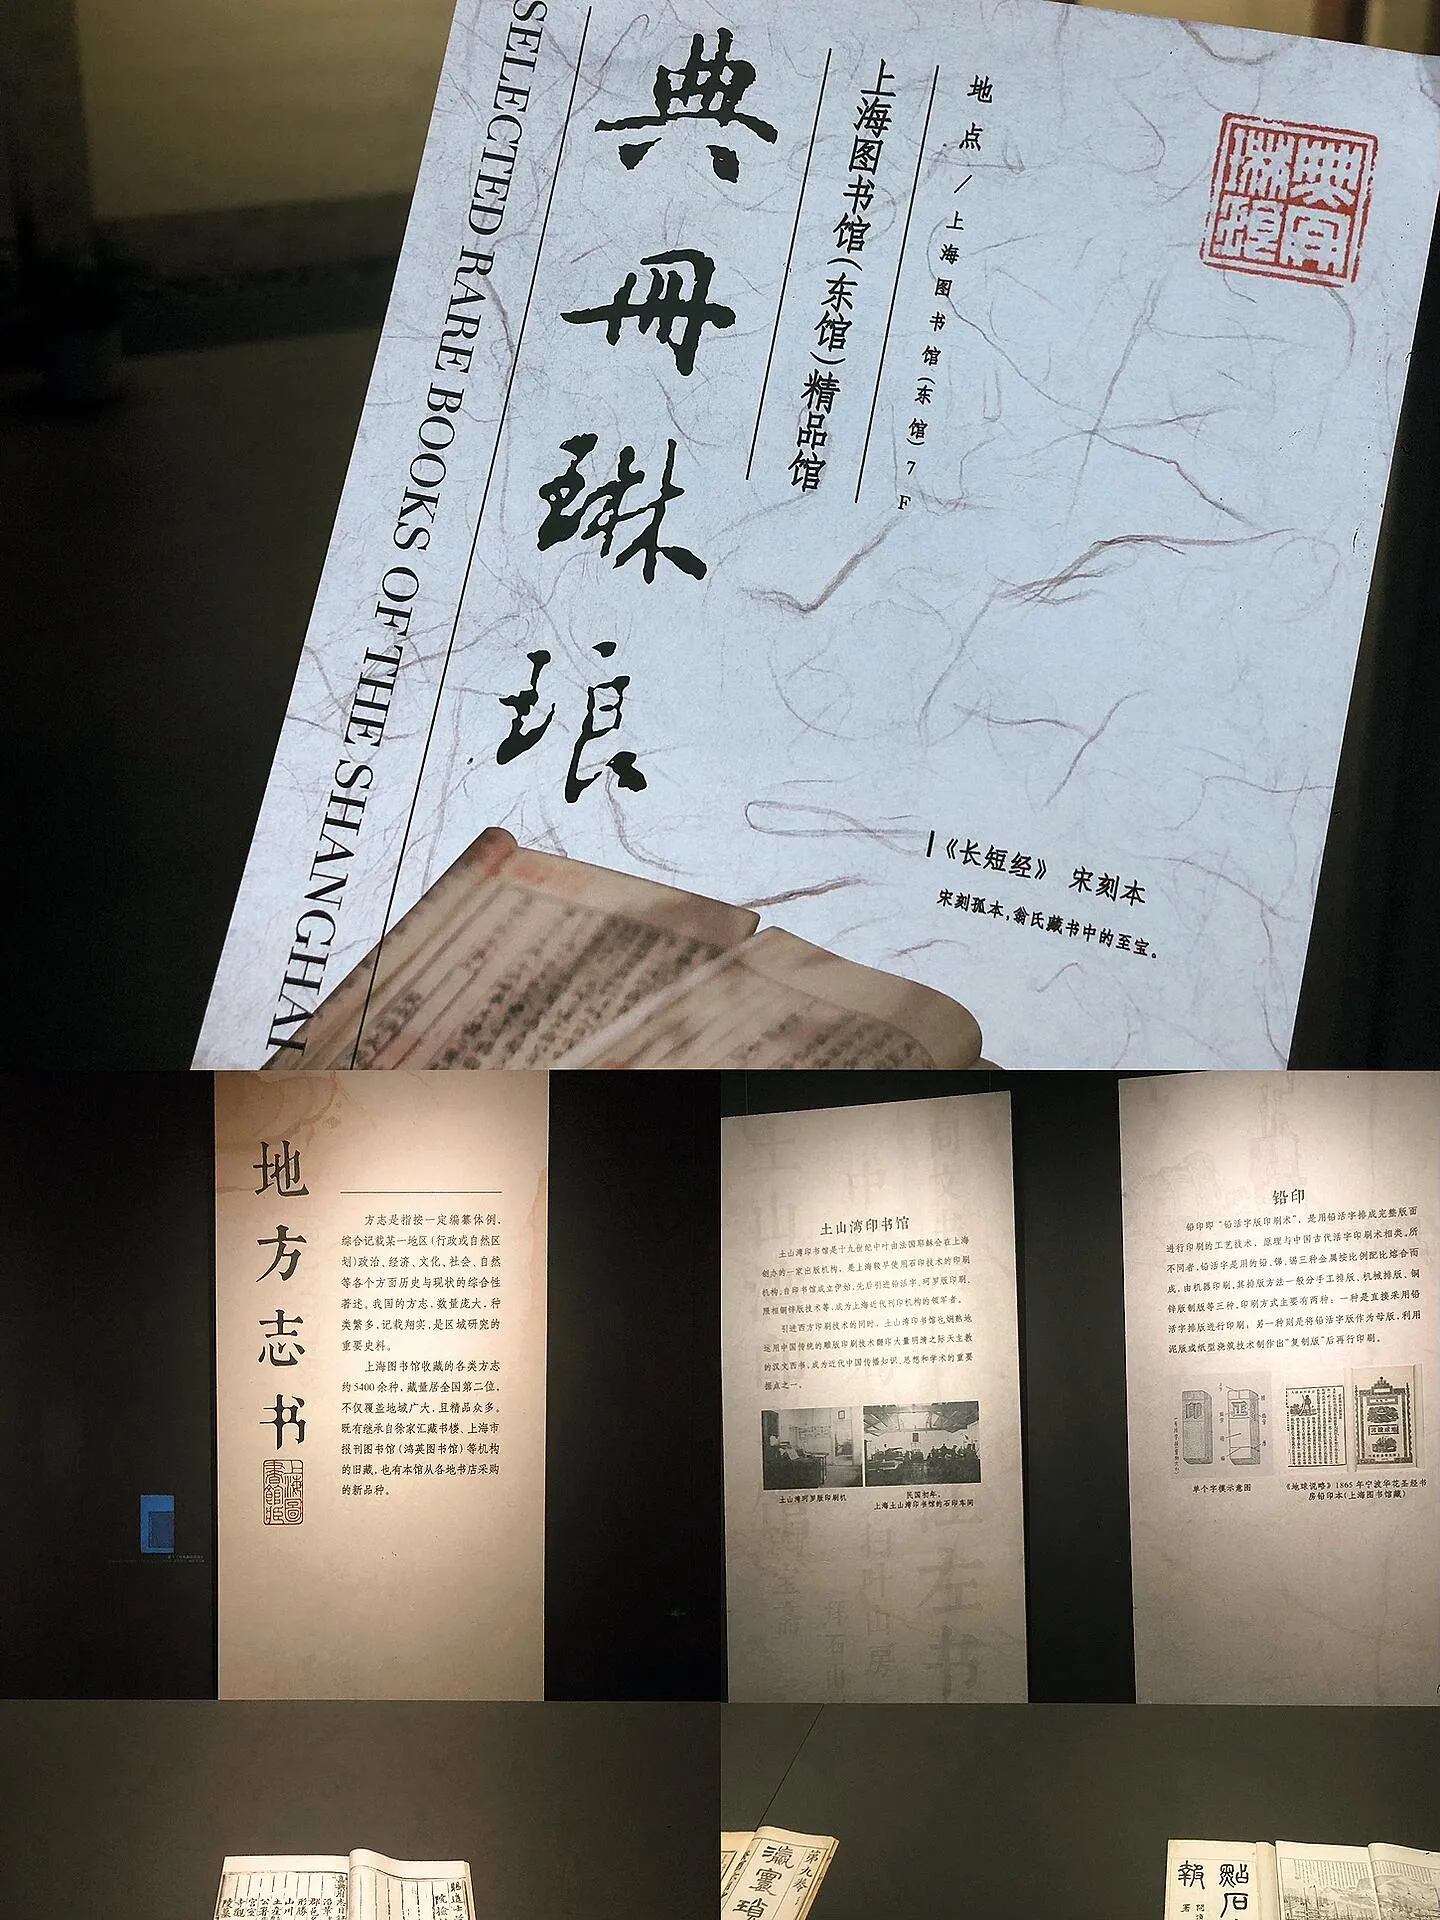 SELECTED RARE BOOKS OF THE SHANGHAI
典冊琳琅
上海图书馆(东馆)精品馆
地点/上海图书馆(东馆)7F
《长短经》 宋刻本
宋刻孤本,翁氏藏书中的至宝。
地方志书
方志是指按一定编纂体例,
综合记载某一地区(行政或自然区
划)政治、经济、文化、社会、自然
等各个方面历史与现状的综合性
著述。我国的方志,数量庞大,种
类繁多,记载翔实,是区域研究的
重要史料。
上海图书馆收藏的各类方志
约5400余种,藏量居全国第二位,
不仅覆盖地域广大,且精品众多。
既有继承自徐家汇藏书楼、上海市
报刊图书馆(鸿英图书馆)等机构
的旧藏,也有本馆从各地书店采购
的新品种。
土山湾印书馆
土山湾印书馆是十九世纪中叶由法国耶稣会在上海
创办的一家出版机构,是上海较早使用石印技术的印刷
机构。自印书馆成立伊始,先后引进铅活字、珂罗版印刷、
照相铜锌版技术等,成为上海近代刊印机构的领军者。
引进西方印刷技术的同时,土山湾印书馆也娴熟地
运用中国传统的雕版印刷技术翻印大量明清之际天主教
的汉文西书,成为近代中国传播知识、思想和学术的重要
据点之一。
土山湾珂罗版印刷机
民国初年,
上海土山湾印书馆的石印车间
铅印
铅印即“铅活字版印刷术”,是用铅活字排成完整版面
进行印刷的工艺技术,原理与中国古代活字印刷术相类。所
不同者,铅活字是用的铅、锑、锡三种金属按比例配比熔合而
成,由机器印刷。其排版方法一般分手工排版、机械排版、铜
锌版制版等三种。印刷方式主要有两种:一种是直接采用铅
活字排版进行印刷;另一种则是将铅活字版作为母版,利用
泥版或纸型浇筑技术制作出“复制版”后再行印刷。
单个字模示意图
《地球说略》1865年宁波华花圣经书
房铅印本(上海图书馆藏)
第九卷
點石
報